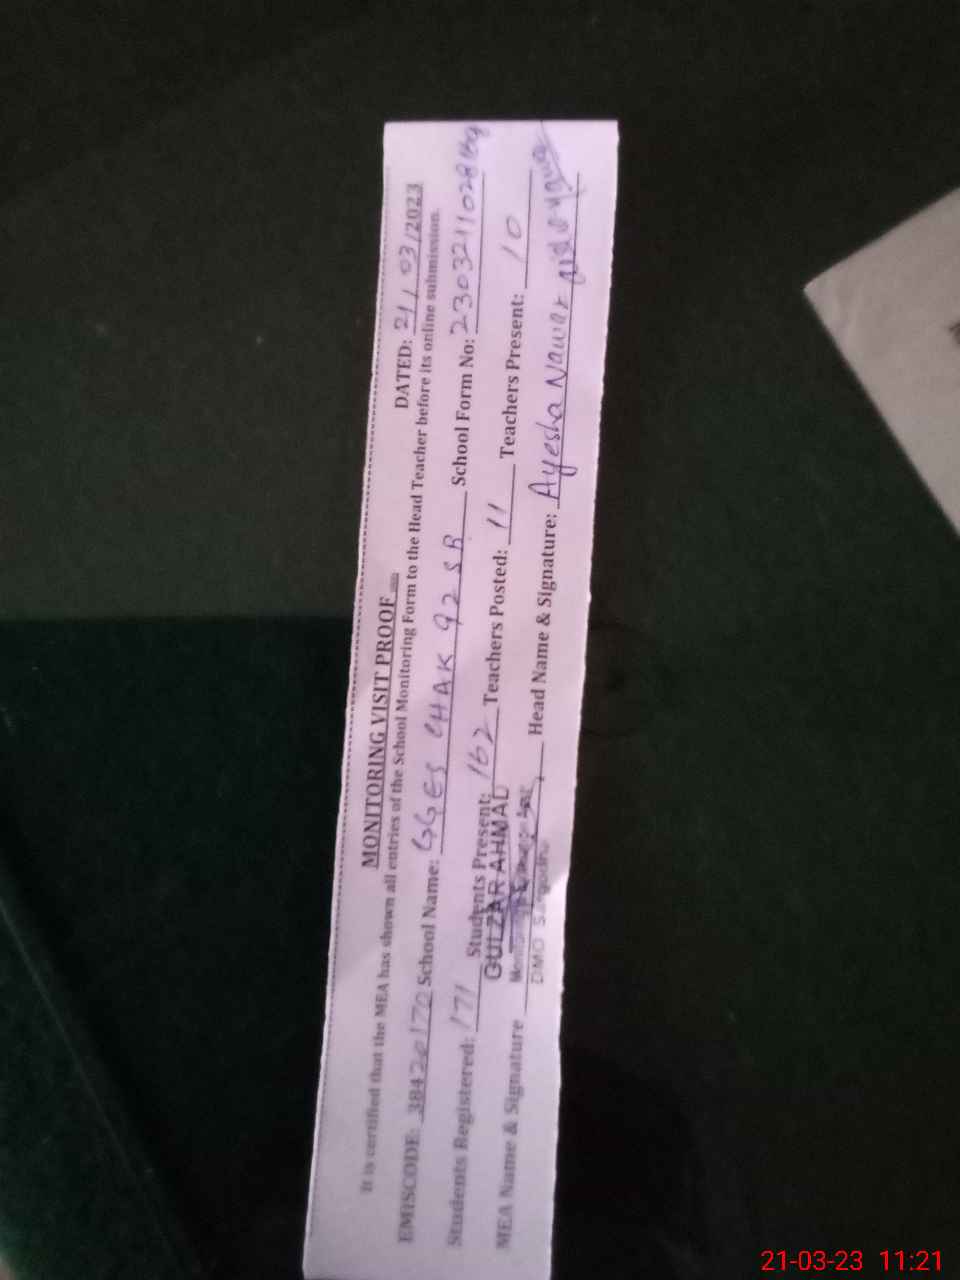 MONITORING VISIT PROOF
DATED: 21/03/2023
It is certified that the MEA has shown all entries of the School Monitoring Form to the Head Teacher before its online submission.
EMISCODE: 38420170 School Name: GGES CHAK 92 SB School Form No:
Students Registered: 171 Students Present: 162 Teachers Posted: 11 Teachers Present: 10
MEA Name & Signature Head Name & Signature: Ayesha Nawaz
GULZAR AHMAD
DMO Sargodha
21-03-23 11:21